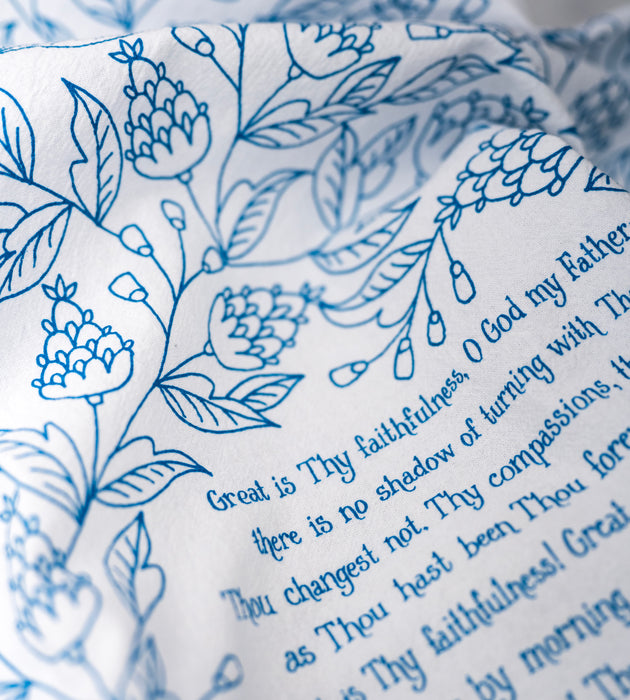 Great is Thy faithfulness, O God my Father
there is no shadow of turning with
Thou changest not. Thy compassions,
as Thou hast been Thou
is Thy faithfulness! Great
by morning